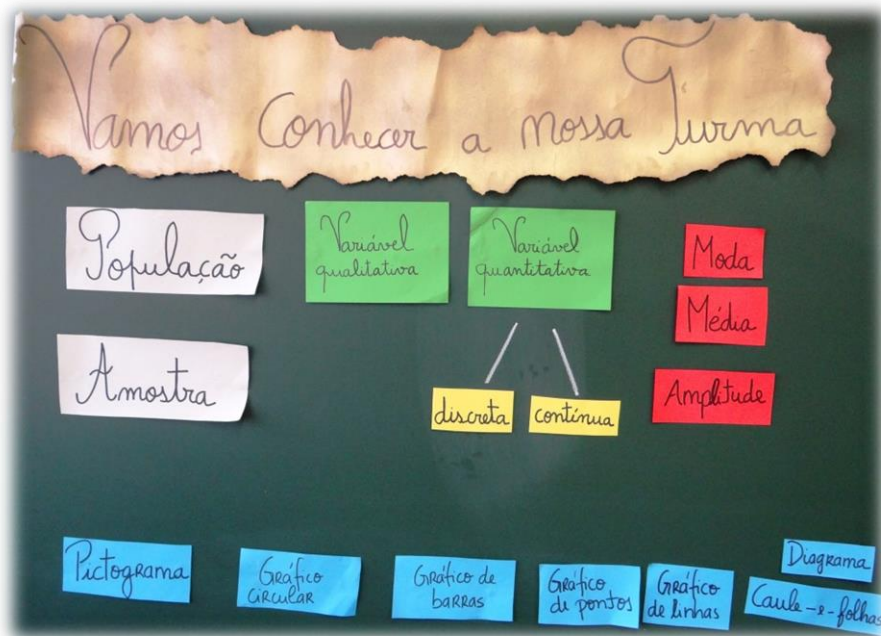 Vamos Conhecer a nossa Turma
População
Variável
qualitativa
Variável
quantitativa
Moda
Média
Amostra
discreta
contínua
Amplitude
Pictograma
Gráfico
circular
Gráfico de
barras
Gráfico
de pontos
Gráfico
de linhas
Diagrama
Caule-e-folhas